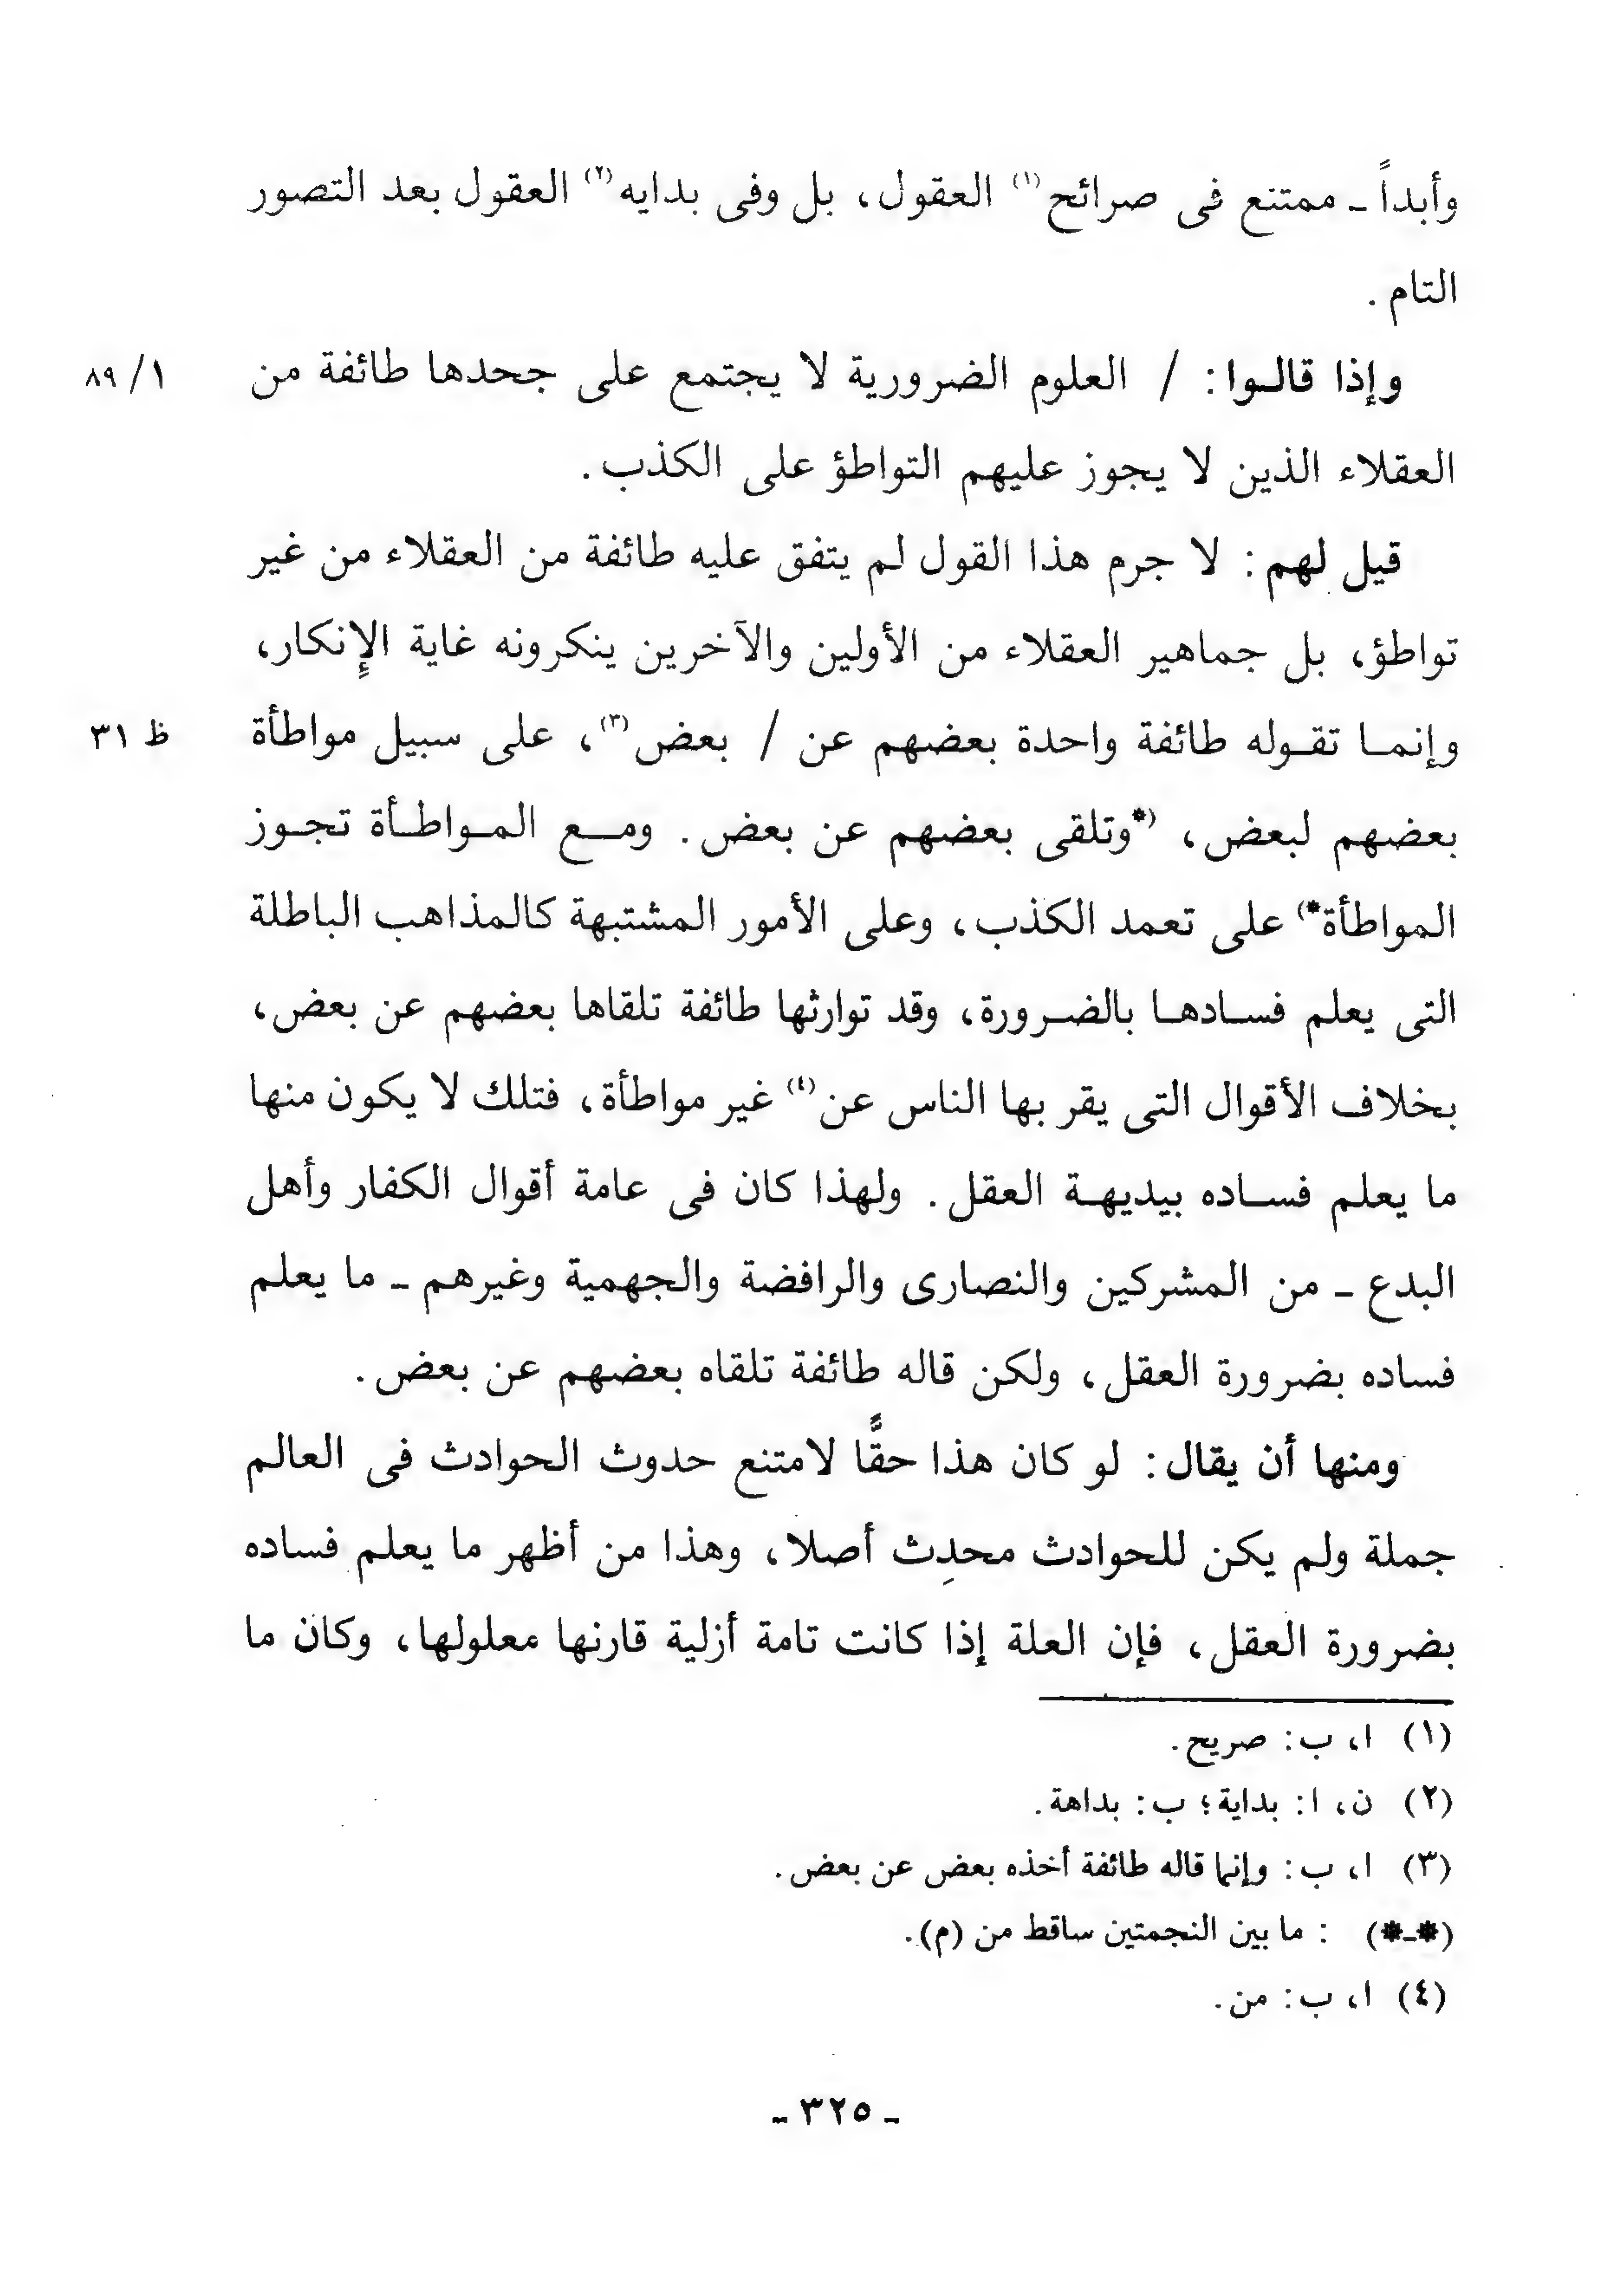 وأبداً ـ ممتنع فى صرائح(١) العقول، بل وفى بدايه(٢) العقول بعد التصور
التام .
وإذا قالـوا : / العلوم الضرورية لا يجتمع على جحدها طائفة من ١/ ٨٩
العقلاء الذين لا يجوز عليهم التواطؤ على الكذب .
قيل لهم : لا جرم هذا القول لم يتفق عليه طائفة من العقلاء من غير
تواطؤ، بل جماهير العقلاء من الأولين والآخرين ينكرونه غاية الإِنكار،
وإنمـا تقـوله طائفة واحدة بعضهم عن / بعض(٣)، على سبيل مواطأة ظ ٣١
بعضهم لبعض ، (*وتلقى بعضهم عن بعض . ومـع المـواطـأة تجـوز
المواطأة*) على تعمد الكذب ، وعلى الأمور المشتبهة كالمذاهب الباطلة
التى يعلم فسـادهـا بالضـرورة، وقد توارثها طائفة تلقاها بعضهم عن بعض،
بخلاف الأقوال التى يقر بها الناس عن(٤) غير مواطأة، فتلك لا يكون منها
ما يعلم فسـاده ببديهـة العقل . ولهذا كان فى عامة أقوال الكفار وأهل
البدع ـ من المشركين والنصارى والرافضة والجهمية وغيرهم ـ ما يعلم
فساده بضرورة العقل، ولكن قاله طائفة تلقاه بعضهم عن بعض .
ومنها أن يقال : لو كان هذا حقًّا لامتنع حدوث الحوادث فى العالم
جملة ولم يكن للحوادث محدِث أصلا، وهذا من أظهر ما يعلم فساده
بضرورة العقل، فإن العلة إذا كانت تامة أزلية قارنها معلولها، وكان ما
(١) ا، ب : صريح .
(٢) ن، ا : بداية ؛ ب : بداهة .
(٣) ا، ب : وإنما قاله طائفة أخذه بعض عن بعض .
(*ـ*) : ما بين النجمتين ساقط من (م) .
(٤) ا، ب : من .
ـ ٣٢٥ ـ